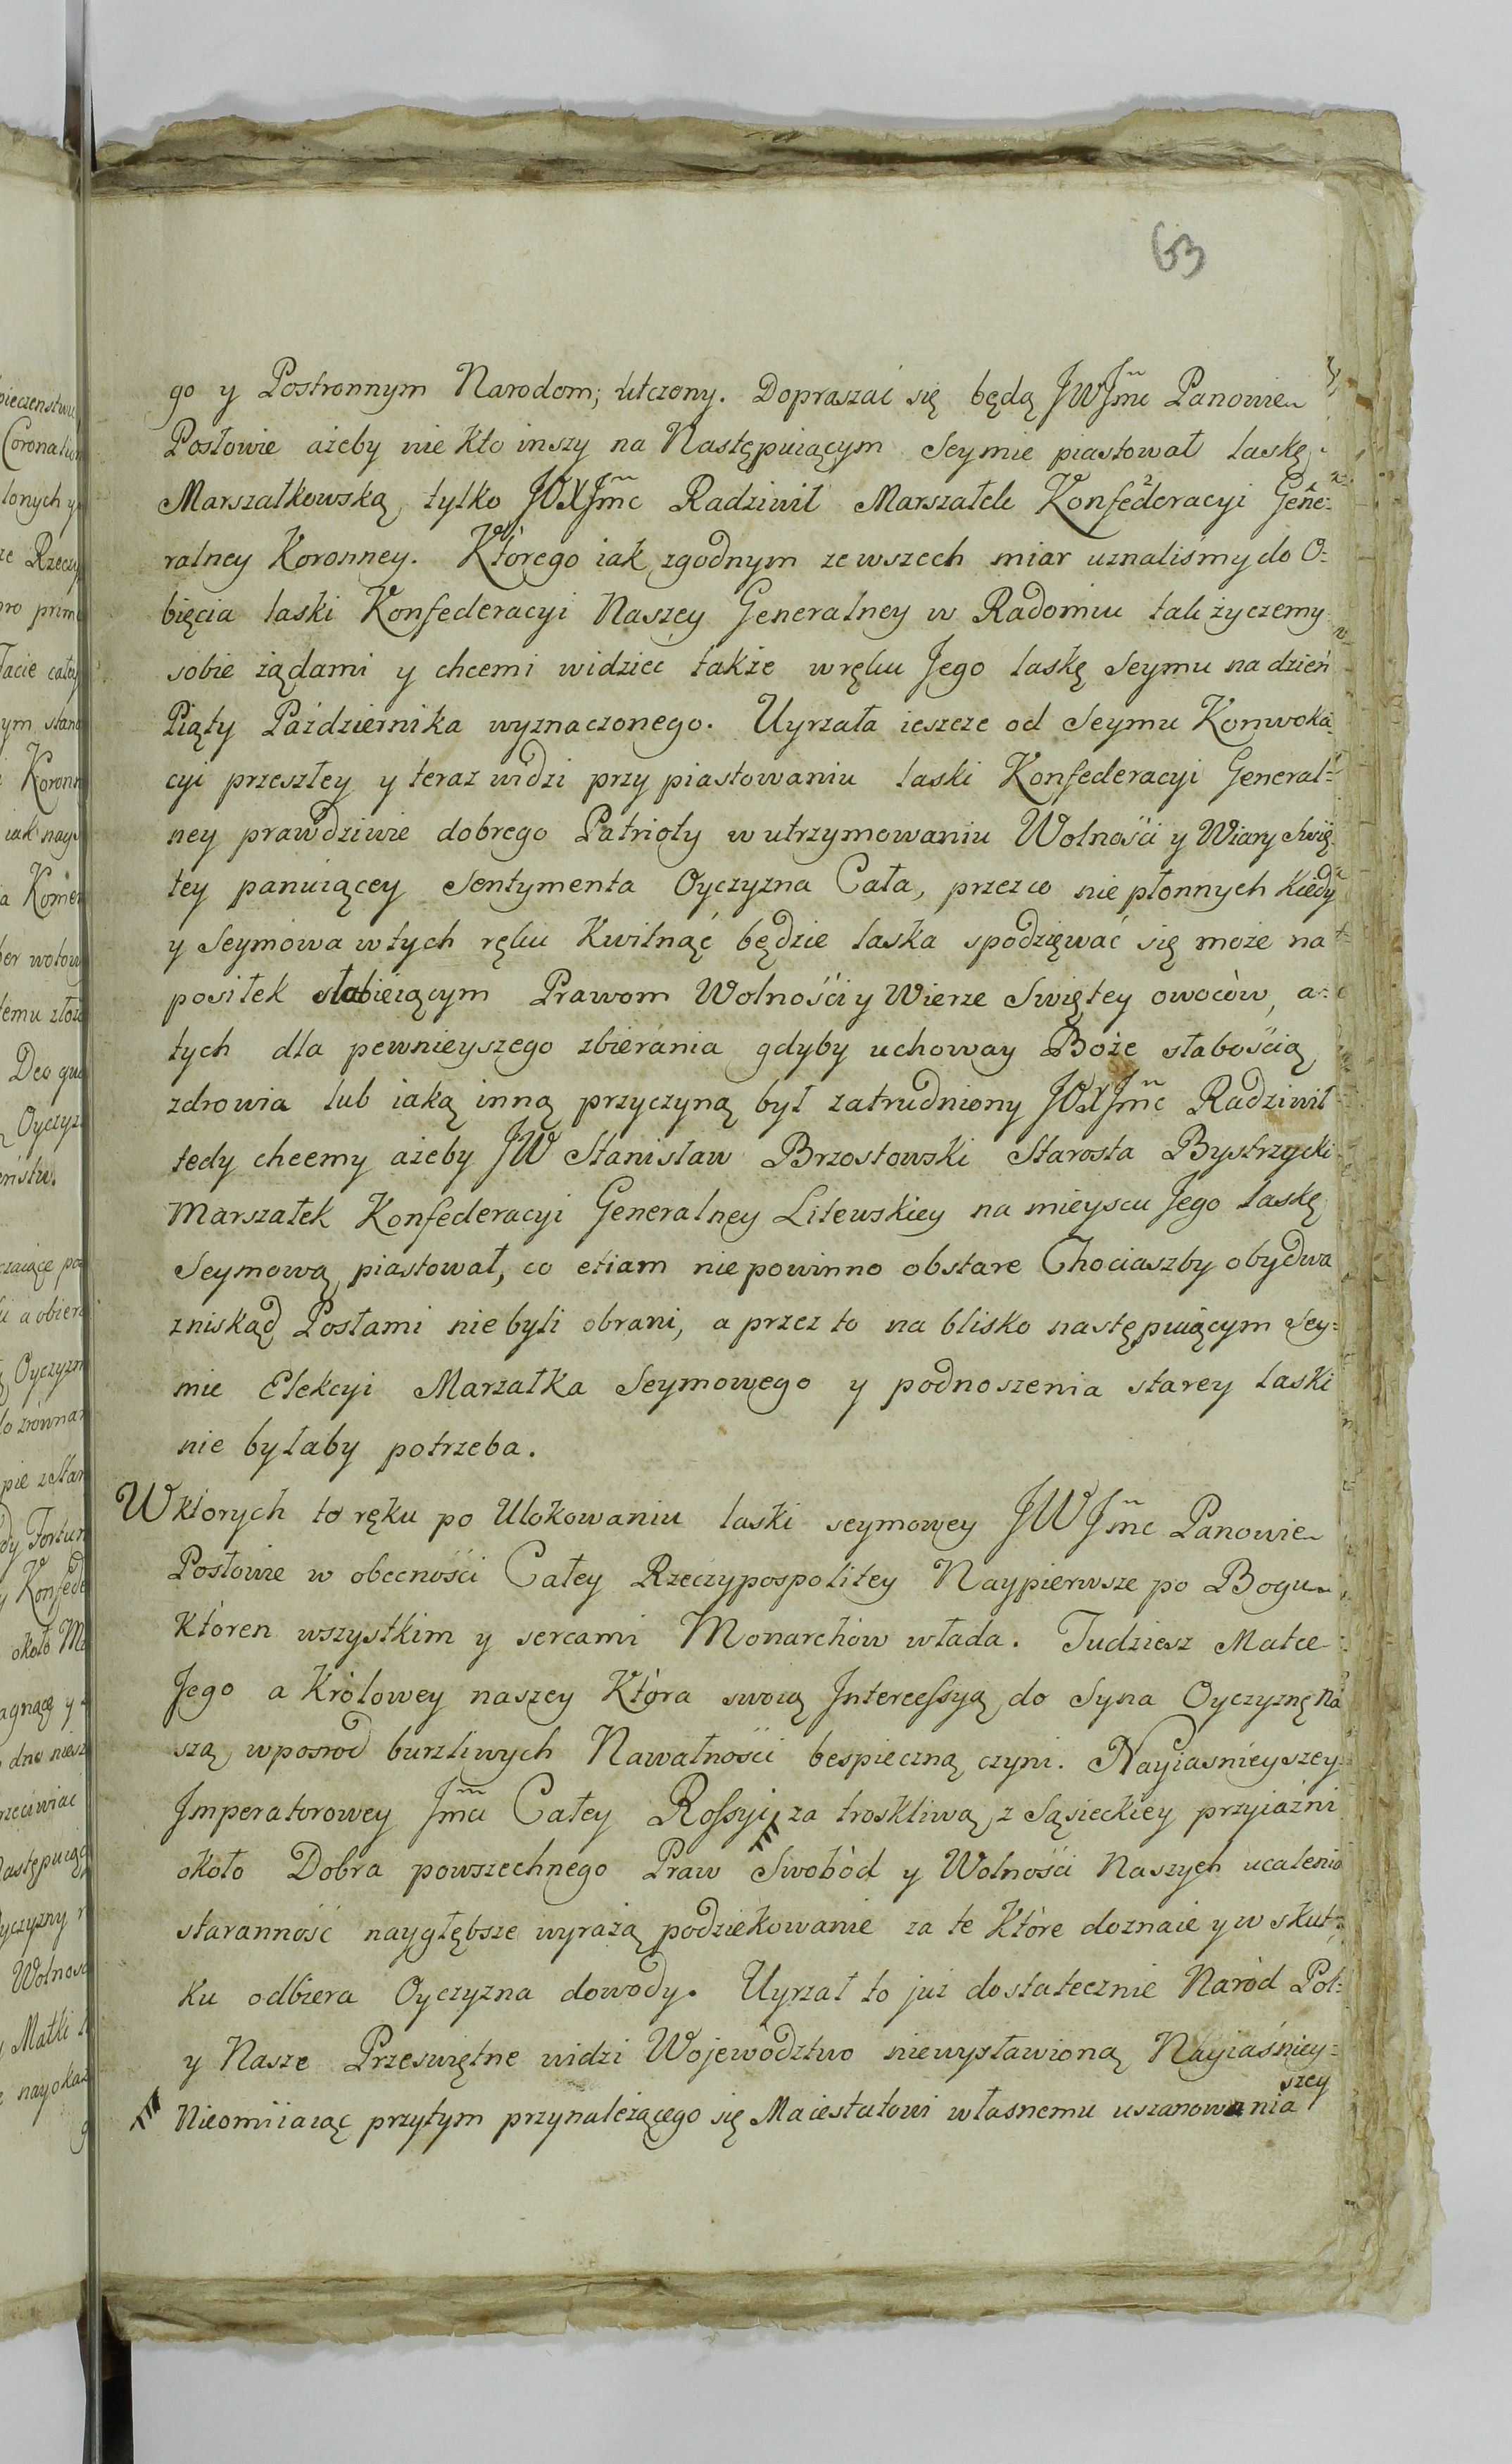 63
go y Postronnym Narodom; utczony. Dopraszać się będą JWJmc Panowie
Posłowie ażeby nie kto inszy na Następuiącym Seymie piastował laskę
Marszałkowską, tylko JOXJmc Radziwił Marszałek Konfederacyi Gene:
ralney Koronney. Którego iak zgodnym ze wszech miar uznalismy do O:
bięcia laski Konfederacyi Naszey Generalney w Radomiu tak życzemy
sobie żądami y chcemi widziec także wręku Jego laskę Seymu na dzień
Piąty Października wyznaczonego. Uyrzała ieszcze od Seymu Konwoka:
cyi przeszłey y teraz widzi przy piastowaniu laski Konfederacyi General:
ney prawdziwie dobrego Patrioty w utrzymowaniu Wolności y Wiary Swię
tey panuiącey Sentymenta Oyczyzna Cała, przez co nie płonnych kiedy
y Seymowa wtych ręku Kwitnąć będzie laska spodzięwać się może na
posiłek słabieiącym Prawom Wolnośći y Wierze Swiętey owoców, a:
tych dla pewnieyszego zbierania gdyby uchoway Boże słabością
zdrowia lub iaką inną przyczyną był zatrudniony JOXJmc Radziwił
tedy chcemy ażeby JW Stanisław Brzostowski Starosta Bystrzycki
Marszałek Konfederacyi Generalney Litewskiey na mieyscu Jego laskę
Seymową piastował, co etiam nie powinno obstare Chociaszby obydwa
zniskąd Posłami nie byli obrani, a przez to na blisko następuiącym Sey:
mie Elekcyi Marzałka Seymowego y podnoszenia starey laski
nie byłaby potrzeba.
Wktorych to ręku po Ulokowaniu laski seymowey JWJmc Panowie
Posłowie w obecnośći Całey Rzeczypospolitey Naypierwsze po Bogu
Któren wszystkim y sercami Monarchów włada. Tudziesz Matce
Jego a Królowey naszey Która swoią Intercessyą do Syna Oyczyznę Na
szą, wposrod burzliwych Nawałnośći bespieczną czyni. Nayiasnieyszey
Imperatorowey Jmci Całey Rossyi za troskliwą z Sąsieckiey przyiaźni
około Dobra powszechnego Praw Swobód y Wolnośći Naszych ucalenia
staranność naygłębsze wyrażą podziekowanie za te Które doznaie y w skut:
ku odbiera Oyczyzna dowody. Uyrzał to już dostatecznie Naród Pol:
y Nasze Przeswiętne widzi Województwo niewysławioną Nayiaśniey:
szey
Nieomiiaiąc przytym przynależącego się Maiestatowi własnemu uszanowania